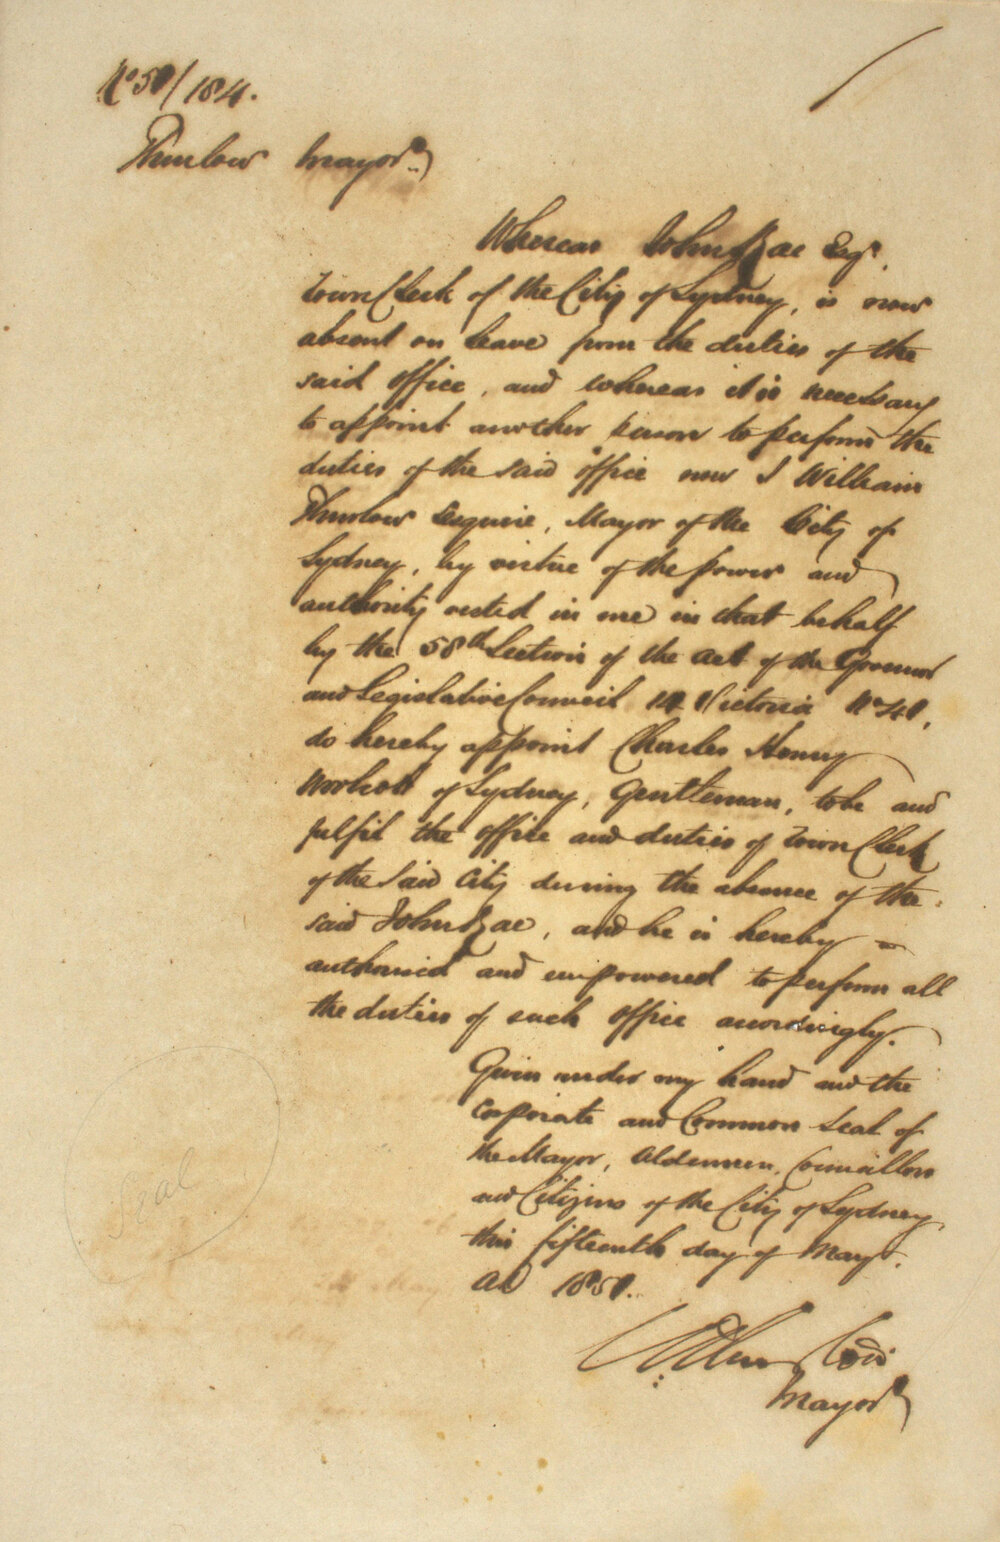 No 51/184.
Thurlow Mayor
Whereas John Rae Esqr.
Town Clerk of the City of Sydney, is now
absent on leave from the duties of the
said office, and whereas it is necessary
to appoint another person to perform the
duties of the said office now I William
Thurlow Esquire, Mayor of the City of
Sydney, by virtue of the power and
authority vested in me in that behalf
by the 58th Section of the Act of the Governor
and Legislative Council 14 Victoria No 41,
do hereby appoint Charles Henry
Woolcott of Sydney, Gentleman, to be and
fulfil the office and duties of Town Clerk
of the said City during the absence of the
said John Rae, and he is hereby
authorised and empowered to perform all
the duties of such office accordingly.
Given under my hand and the
corporate and Common Seal of
the Mayor, Aldermen, Councillors
and Citizens of the City of Sydney,
this fifteenth day of May.
AD 1851.
Seal
Mayor